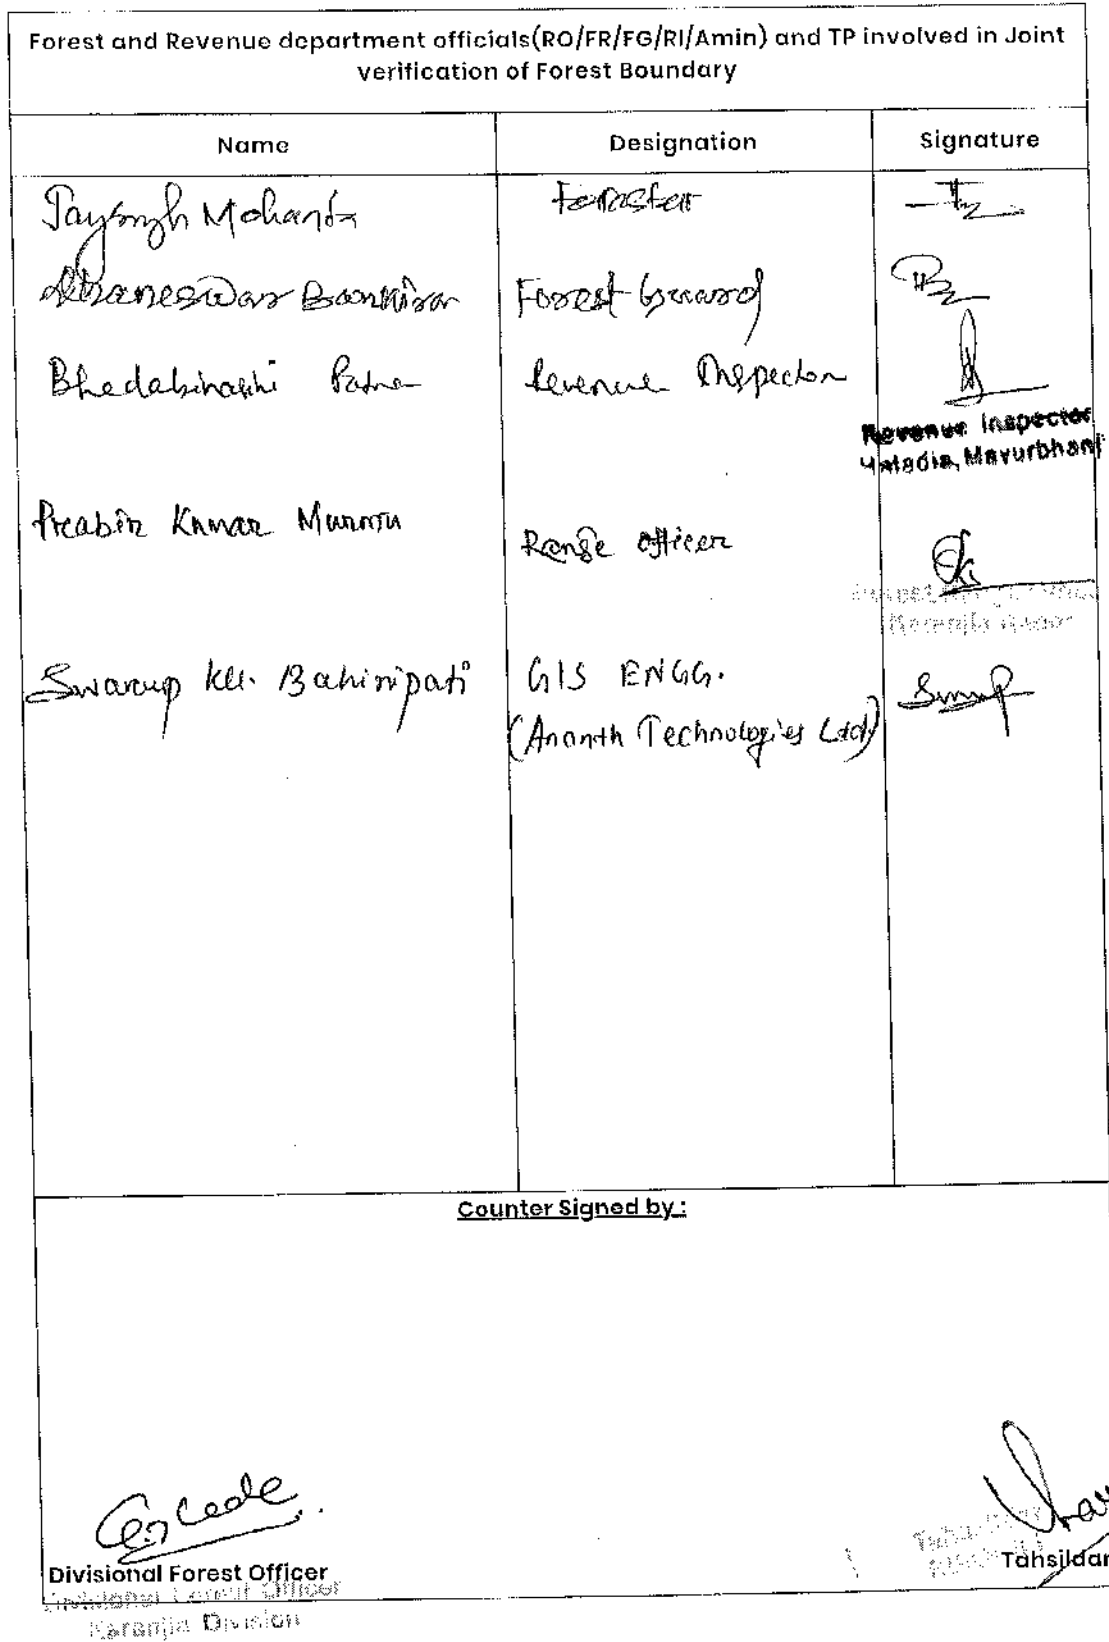 Forest and Revenue department officials(RO/FR/FG/RI/Amin) and TP involved in Joint
verification of Forest Boundary
Name Designation Signature
Mohanta Forester
Dhaneswar Forest Guard
Bhedabinashi Patra Revenue Inspector
Revenue Inspector
Haladia, Mayurbhanj
Preabir Kumar Murmu Range officer
Karanjia Range
Swarup Ku. Bahinipati GIS ENGG.
(Ananth Technologies Ltd)
Counter Signed by :
Divisional Forest Officer Tahsildar
Divisional Forest Officer
Karanjia Division